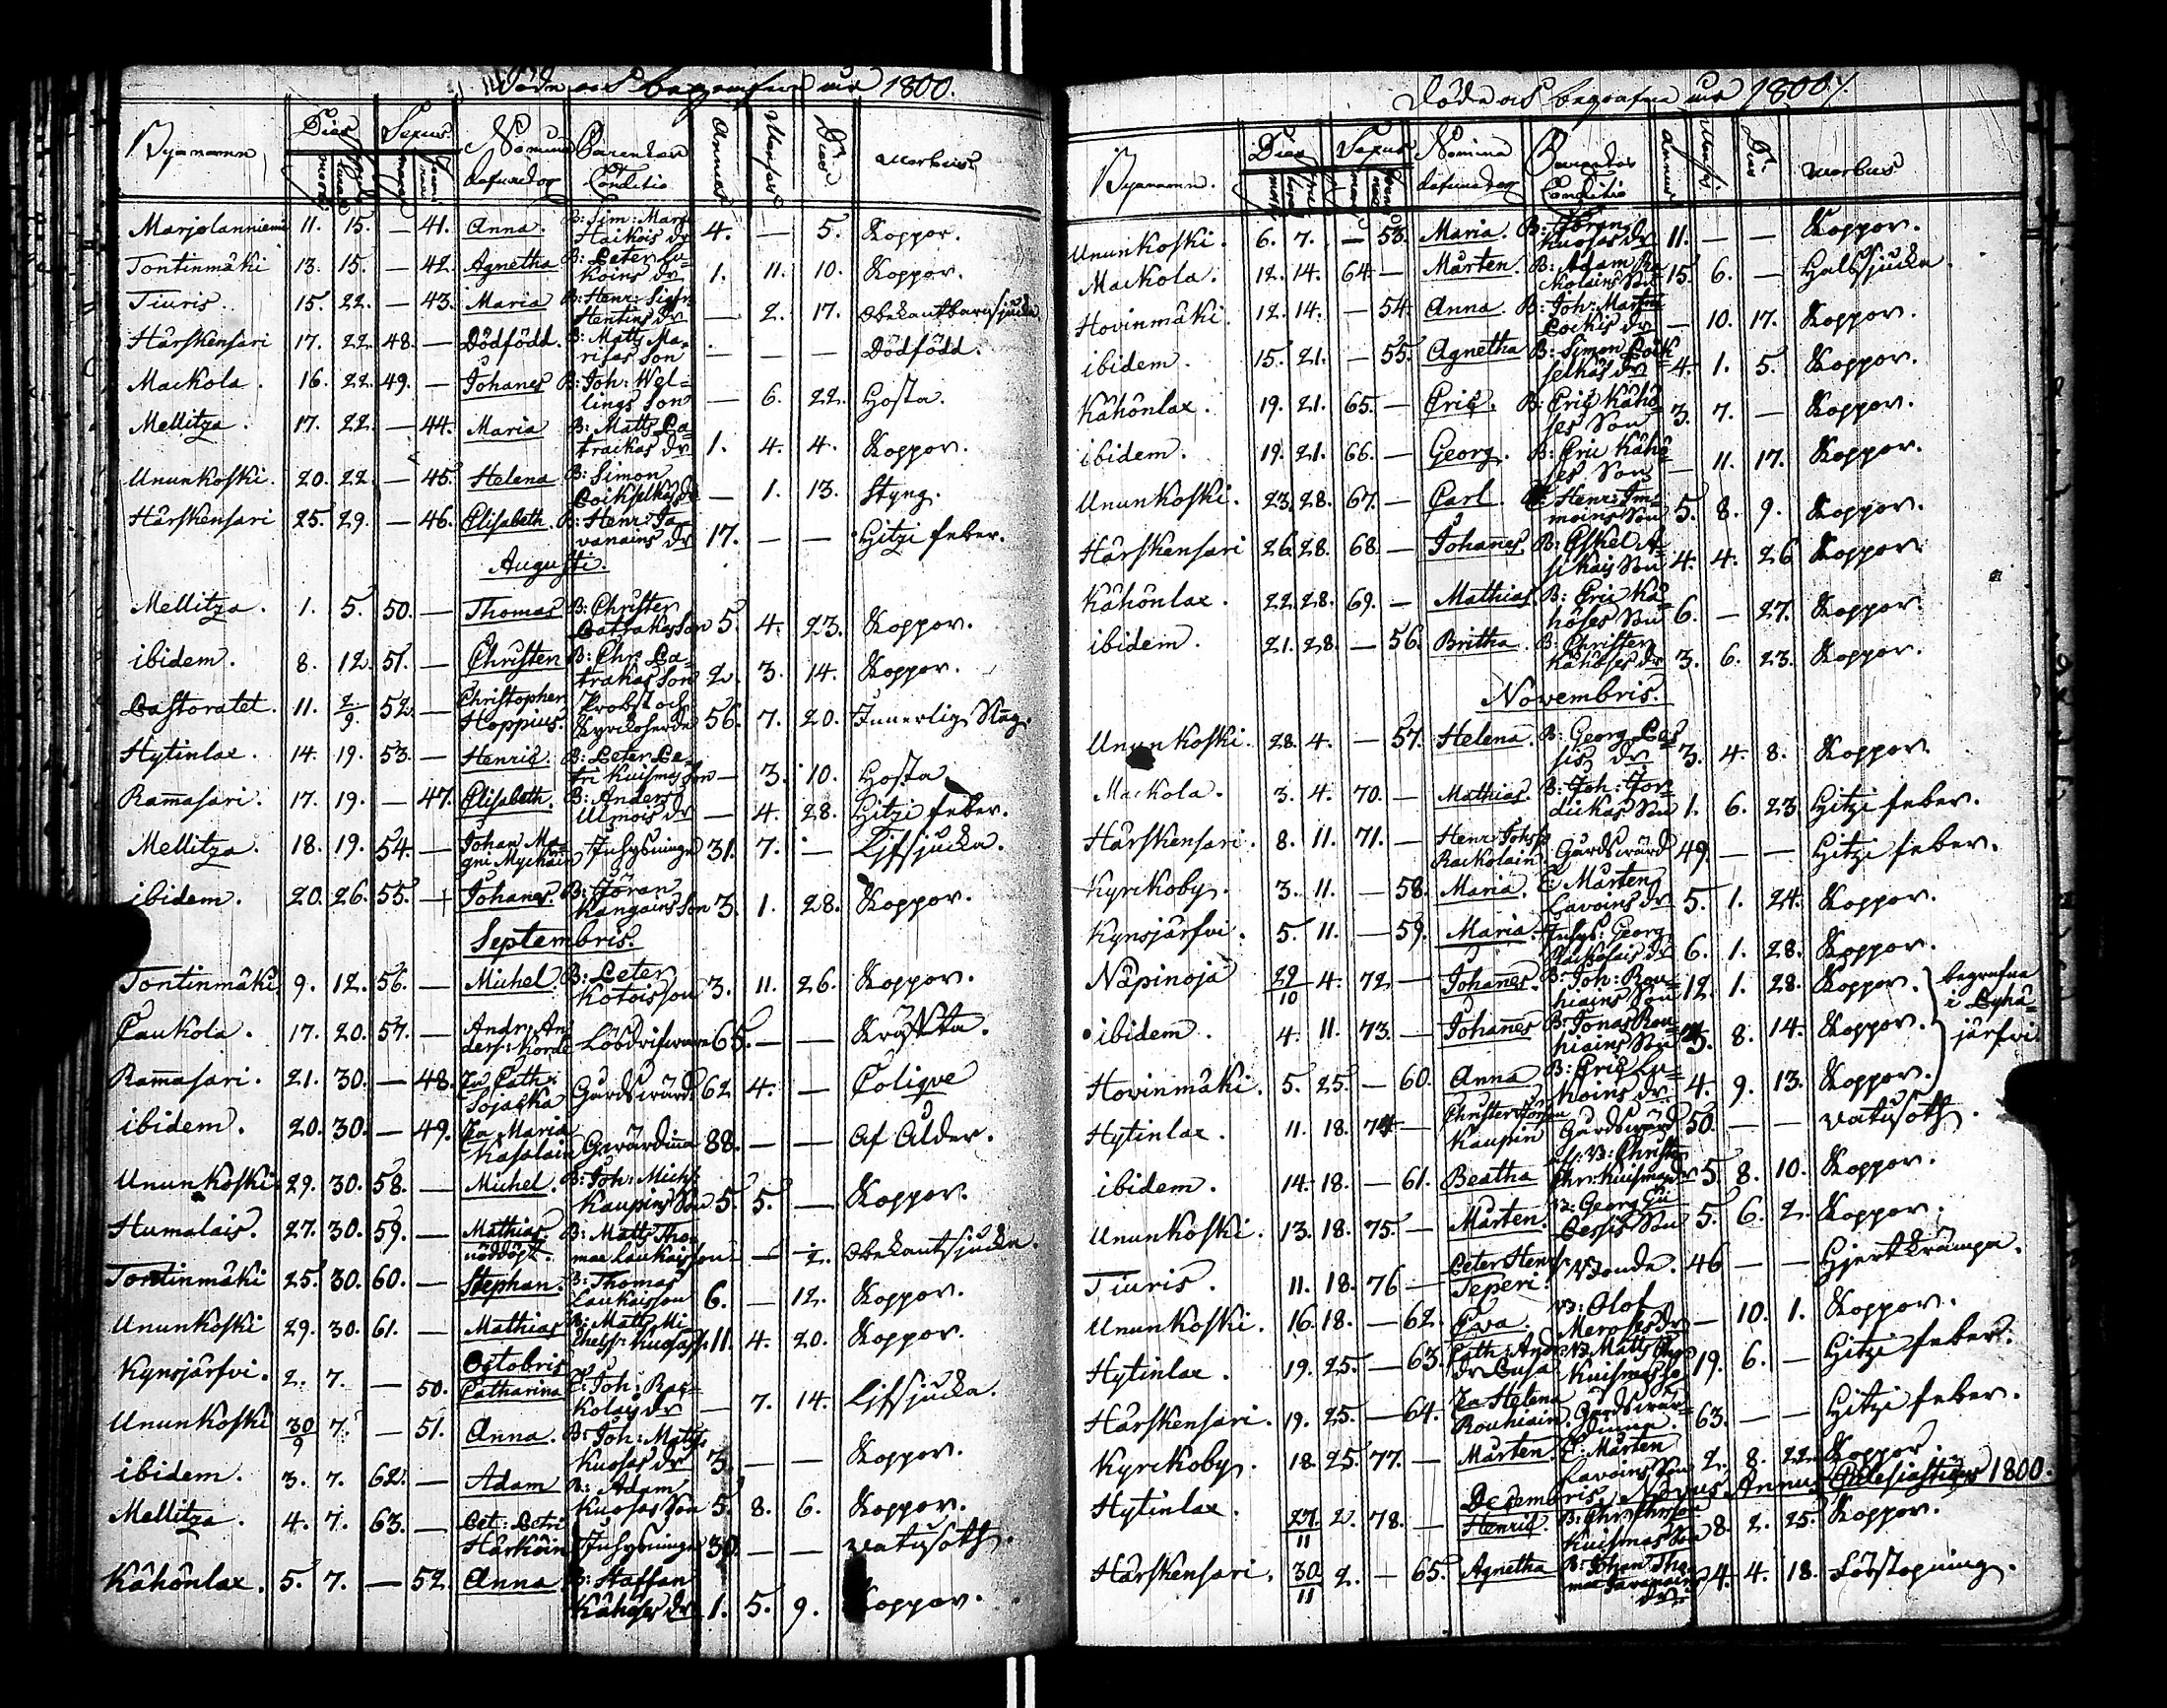 Döde och begrafne år 1800.
Byanamn Dies Sexus Nomina Parentes Annus Menses Dies Morbus
defunctor. Conditio
Marjolanniemi 11. 15. — 41. Anna. B: Sim: Mart: Haikois dr 4. — 5. Koppor.
Tontinmäki 13. 15. — 42. Agnetha B: Peter Lu=koins dr 1. 11. 10. Koppor.
Tiuris. 15. 22. — 43. Maria B: Henr: Sigfr: Hentins dr — 2. 17. Obekant barnsjuka
Härskensari 17. 22. 48. — Dödfödd. B: Matts Ma= Son — — — Dödfödd.
Mackola. 16. 22. 49. — Johanes B: Joh: Wel=lings Son — 6. 22. Hosta.
Mellitza. 17. 22. — 44. Maria B: Matts Pa=traikas dr 1. 4. 4. Koppor.
Ununkoski. 20. 22. — 45. Helena B: Simon Poikselkäs dr — 1. 13. Styng.
Härskensari 25. 29. — 46. Elisabeth. B: Henr: Ta=vanains dr 17. — — Hitzi feber.
Augusti.
Mellitza. 1. 5. 50. — Thomas B: Christer Patrakas Son 5. 4. 23. Koppor.
ibidem. 8. 12. 51. — Christen B: Chr: Pa=trakas Son 2. 3. 14. Koppor.
Pastoratet. 11. 2/9. 52. — Christopher Hoppius. Probst och Kyrkoherde 56. 7. 20. Innerlig Släg.
Hytinlax. 14. 19. 53. — Henric. B: Peter Pe=tri Kuismas Son — 3. 10. Hosta
Ramasari. 17. 19. — 47. Elisabeth. B: Anders Ulmois dr — 4. 28. Hitzi feber.
Mellitza. 18. 19. 54. — Johan Ma=gni Mychäin Inhysninge 31. 7. — Lifsjucka.
ibidem. 20. 26. 55. — Johanes. B: Jöran Kangains Son 3. 1. 28. Koppor.
Septembris.
Tontinmäki. 9. 12. 56. — Michel. B: Peter Kotois son 3. 11. 26. Koppor.
Paukola. 17. 20. 57. — Andr: An=ders: Lösdrifware 65. — — Kräfta.
Ramasari. 21. 30. — 48. En Cath: Sojacka Gårdswärd. 62 4. — Colique
ibidem. 20. 30. — 49. En Maria Kasolain Gwärdiña 88. — — Af Ålder.
Ununkoski. 29. 30. 58. — Michel. B: Joh: Michs: Kaupins Son 5. 5. — Koppor.
Humalais. 27. 30. 59. — Mathias. nöddöpt. B: Matts Tho=mae Laukais son — — ½. Obekant sjucka.
Tontinmäki 25. 30. 60. — Stephan. B: Thomas Laukais son 6. — 12. Koppor.
Ununkoski 29. 30. 61. — Mathias B: Matts Mi=chelss: Kuosas S. 11. 4. 20. Koppor.
Octobris
Kynsjärfvi. 2. 7. — 50. Catharina T: Joh: Rac=kolas dr — 7. 14. Lifsjucka.
Ununkoski 30/9 7. — 51. Anna. B: Joh: Matss: Kuosas dr 3. — — Koppor.
ibidem. 3. 7. 62. — Adam B: Adam Kuosas Son 5. 8. 6. Koppor.
Mellitza. 4. 7. 63. — Pet: Petri Härköin Inhysninge 30. — — Vatusoth.
Kähönlax. 5. 7. — 52. Anna B: Staffan Kähöses dr 1. 5. 9. Koppor.
Döde och begrafne år 1800.
Byanamn. Dies Sexus Nomina Parentes Annus Mensis Dies Morbus
defunctor. Conditio
Ununkoski. 6. 7. — 53. Maria. B: Jöran Kuosas dr 11. — — Koppor.
Mackola. 12. 14. 64. — Mårten. B: Adam Ra=ckolains Son 15. 6. — Halssjucka.
Hovinmäki. 12. 14. — 54. Anna B: Joh: Martini Pockis dr — 10. 17. Koppor.
ibidem. 15. 21. — 55. Agnetha B: Simon Poik=selkäs dr 4. 1. 5. Koppor.
Kähönlax. 19. 21. 65. — Eric. B: Eric Kähö=ses Son 3. 7. — Koppor.
ibidem. 19. 21. 66. — Georg. B: Eric Kähö=ses Son — 11. 17. Koppor.
Ununkoski. 23. 28. 67. — Carl. Henr: Im=moins Son 5. 8. 9. Koppor.
Härskensari 26. 28. 68. — Johanes. B: Eskel A=sikais Son 4. 4. 26 Koppor
Kähönlax. 22. 28. 69. — Mathias. B: Eric Kä=höses Son 6. — 27. Koppor.
ibidem. 21. 28. — 56. Britha. B: Christer Kähöses dr 3. 6. 23. Koppor.
Novembris.
Ununkoski. 28. 4. — 57. Helena. B: Georg Pes=sis dr 3. 4. 8. Koppor.
Mackola. 3. 4. 70. — Mathias. B: Joh: Tor=dickas Son 1. 6. 23. Hitzi feber.
Härskensari. 8. 11. 71. — Henr Johs: Rackolain. Gårdswärd 49 — — Hitzi feber.
Kyrckoby. 3. 11. — 58. Maria. T: Mårten Pavoins dr 5. 1. 24. Koppor.
Kynsjärfvi. 5. 11. — 59. Maria. Inhys: Georg Mackolais dr 6. 1. 28. Koppor.
Näpinoja 29/10 4. 72. — Johanes. B: Joh: Rou=hiains Son 12. 1. 28. Koppor. begrafne
ibidem. 4. 11. 73. — Johanes B: Jonas Rou=hiains Son 3. 8. 14. Koppor. i Pyhä=järfvi.
Hovinmäki. 5. 25. — 60. Anna B: Eric Lu=koins dr. 4. 9. 13. Koppor.
Hytinlax. 11. 18. 74 — Christer Jöransson Kaupin Gårdswärd 50. — — Vatusoth.
ibidem. 14. 18. — 61. Beatha B: Christ: Chr: Kuismas dr 5. 8. 10. Koppor.
Ununkoski. 13. 18. 75. — Mårten. B: Georg Pessis Son 5. 6. 2. Koppor.
Tiuris. 11. 18. 76 — Peter Henrs: Teperi. Bonde. 46 — — Hjertkrampa.
Ununkoski. 16. 18. — 62. Eva. B: Olof Meroses dr — 10. 1. Koppor.
Hytinlax. 19. 25. — 63. Cath: Andr: dr Pusa B: Matts Kuismas 19. 6. — Hitzi feber.
Härskensari. 19. 25. — 64. En Helena Rouhiain. Gårdswär=dinna. 63. — — Hitzi feber.
Kyrckoby. 18. 25. 77. — Mårten. T: Mårten Pavoins Son 2. 8. 22. Koppor.
Decembris. Novus Annus Eclesiasticus 1800.
Hytinlax. 27/11 2. 78. — Henric. B: Chr: Kuismas Son 8. 2. 25. Koppor.
Härskensari. 30/11 2. — 65. Agnetha B: Johan Tho=mae Tavanains dr. 4. 4. 18. Förstopning.